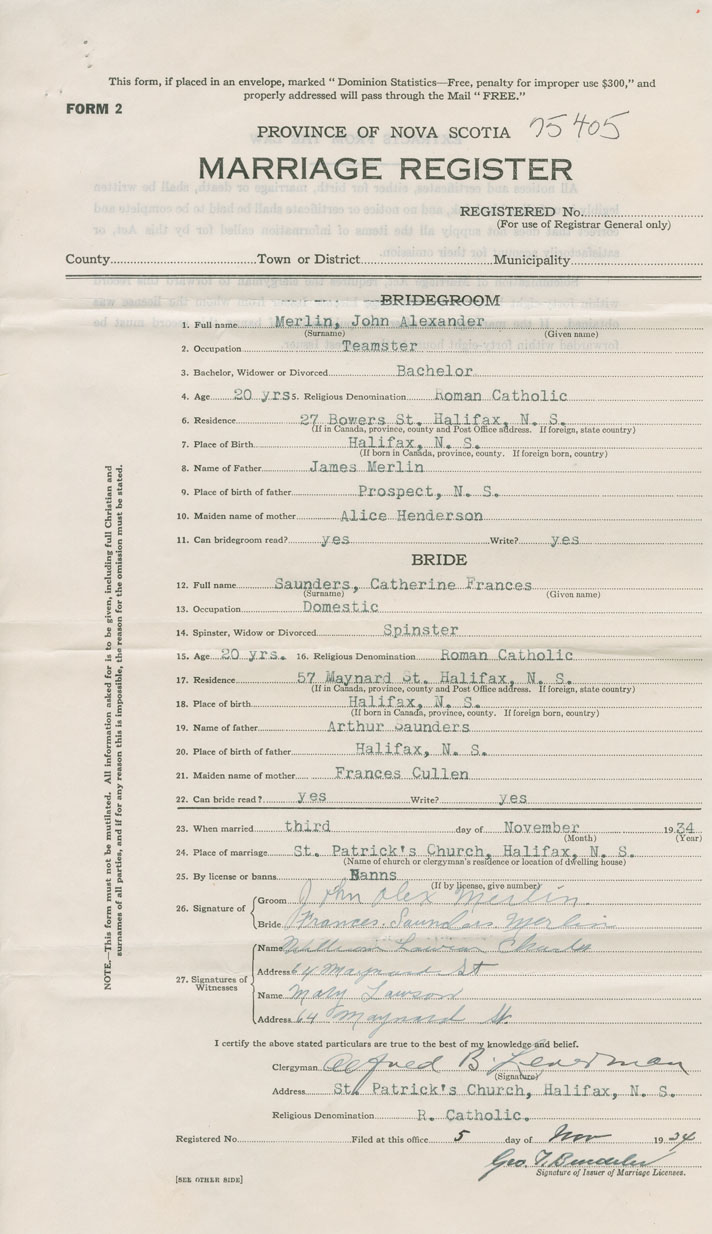 This form, if placed in an envelope, marked " Dominion Statistics—Free, penalty for improper use $300," and
properly addressed will pass through the Mail " FREE."
FORM 2
PROVINCE OF NOVA SCOTIA 75405
MARRIAGE REGISTER
REGISTERED No.
(For use of Registrar General only)
County Town or District Municipality
BRIDEGROOM
1. Full name Merlin, John Alexander
(Surname) (Given name)
2. Occupation Teamster
3. Bachelor, Widower or Divorced Bachelor
4. Age 20 yrs 5. Religious Denomination Roman Catholic
6. Residence 27 Bowers St. Halifax, N. S.
(If in Canada, province, county and Post Office address. If foreign, state country)
7. Place of Birth Halifax, N. S.
(If born in Canada, province, county. If foreign born, country)
8. Name of Father James Merlin
9. Place of birth of father Prospect, N. S.
10. Maiden name of mother Alice Henderson
11. Can bridegroom read? yes Write? yes
BRIDE
12. Full name Saunders, Catherine Frances
(Surname) (Given name)
13. Occupation Domestic
14. Spinster, Widow or Divorced Spinster
15. Age 20 yrs. 16. Religious Denomination Roman Catholic
17. Residence 57 Maynard St. Halifax, N. S.
(If in Canada, province, county and Post Office address. If foreign, state country)
18. Place of birth Halifax, N. S.
(If born in Canada, province, county. If foreign born, country)
19. Name of father Arthur Saunders
20. Place of birth of father Halifax, N. S.
21. Maiden name of mother Frances Cullen
22. Can bride read? yes Write? yes
23. When married third day of November 1934
(Month) (Year)
24. Place of marriage St. Patrick's Church, Halifax, N. S.
(Name of church or clergyman's residence or location of dwelling house)
25. By license or banns Banns
(If by license, give number)
26. Signature of
Groom John Alex Merlin
Bride Frances Saunders Merlin
27. Signatures of Witnesses
Name William
Address 64 Maynard St
Name Mary Lawson
Address 64 Maynard St.
I certify the above stated particulars are true to the best of my knowledge and belief.
Clergyman Alfred B.
(Signature)
Address St. Patrick's Church, Halifax, N. S.
Religious Denomination R. Catholic.
Registered No. Filed at this office 5 day of Nov 1934
Geo. T.
Signature of Issuer of Marriage Licenses.
[SEE OTHER SIDE]
NOTE.—This form must not be mutilated. All information asked for is to be given, including full Christian and
surnames of all parties, and if for any reason this is impossible, the reason for the omission must be stated.